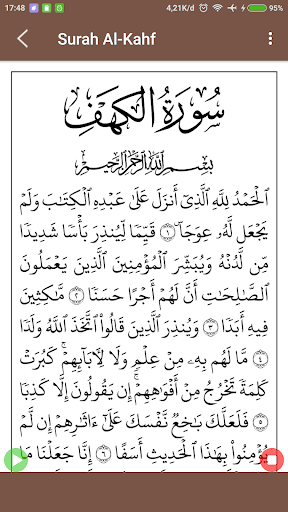 17:48 4,21K/d 95%
Surah Al-Kahf
سُورَةُ الكَهْفِ
بِسْمِ اللَّهِ الرَّحْمَٰنِ الرَّحِيمِ
ٱلْحَمْدُ لِلَّهِ ٱلَّذِىٓ أَنزَلَ عَلَىٰ عَبْدِهِ ٱلْكِتَٰبَ وَلَمْ
يَجْعَل لَّهُۥ عِوَجَاۜ ١ قَيِّمًا لِّيُنذِرَ بَأْسًا شَدِيدًا
مِّن لَّدُنْهُ وَيُبَشِّرَ ٱلْمُؤْمِنِينَ ٱلَّذِينَ يَعْمَلُونَ
ٱلصَّٰلِحَٰتِ أَنَّ لَهُمْ أَجْرًا حَسَنًا ٢ مَّٰكِثِينَ
فِيهِ أَبَدًا ٣ وَيُنذِرَ ٱلَّذِينَ قَالُوا۟ ٱتَّخَذَ ٱللَّهُ وَلَدًا
٤ مَّا لَهُم بِهِۦ مِنْ عِلْمٍ وَلَا لِءَابَآئِهِمْ ۚ كَبُرَتْ
كَلِمَةً تَخْرُجُ مِنْ أَفْوَٰهِهِمْ ۚ إِن يَقُولُونَ إِلَّا كَذِبًا
٥ فَلَعَلَّكَ بَٰخِعٌ نَّفْسَكَ عَلَىٰٓ ءَاثَٰرِهِمْ إِن لَّمْ
يُؤْمِنُوا۟ بِهَٰذَا ٱلْحَدِيثِ أَسَفًا ٦ إِنَّا جَعَلْنَا مَا